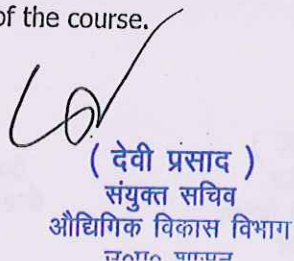 of the course.
( देवी प्रसाद )
संयुक्त सचिव
औद्यिगिक विकास विभाग
उ०प्र० शासन